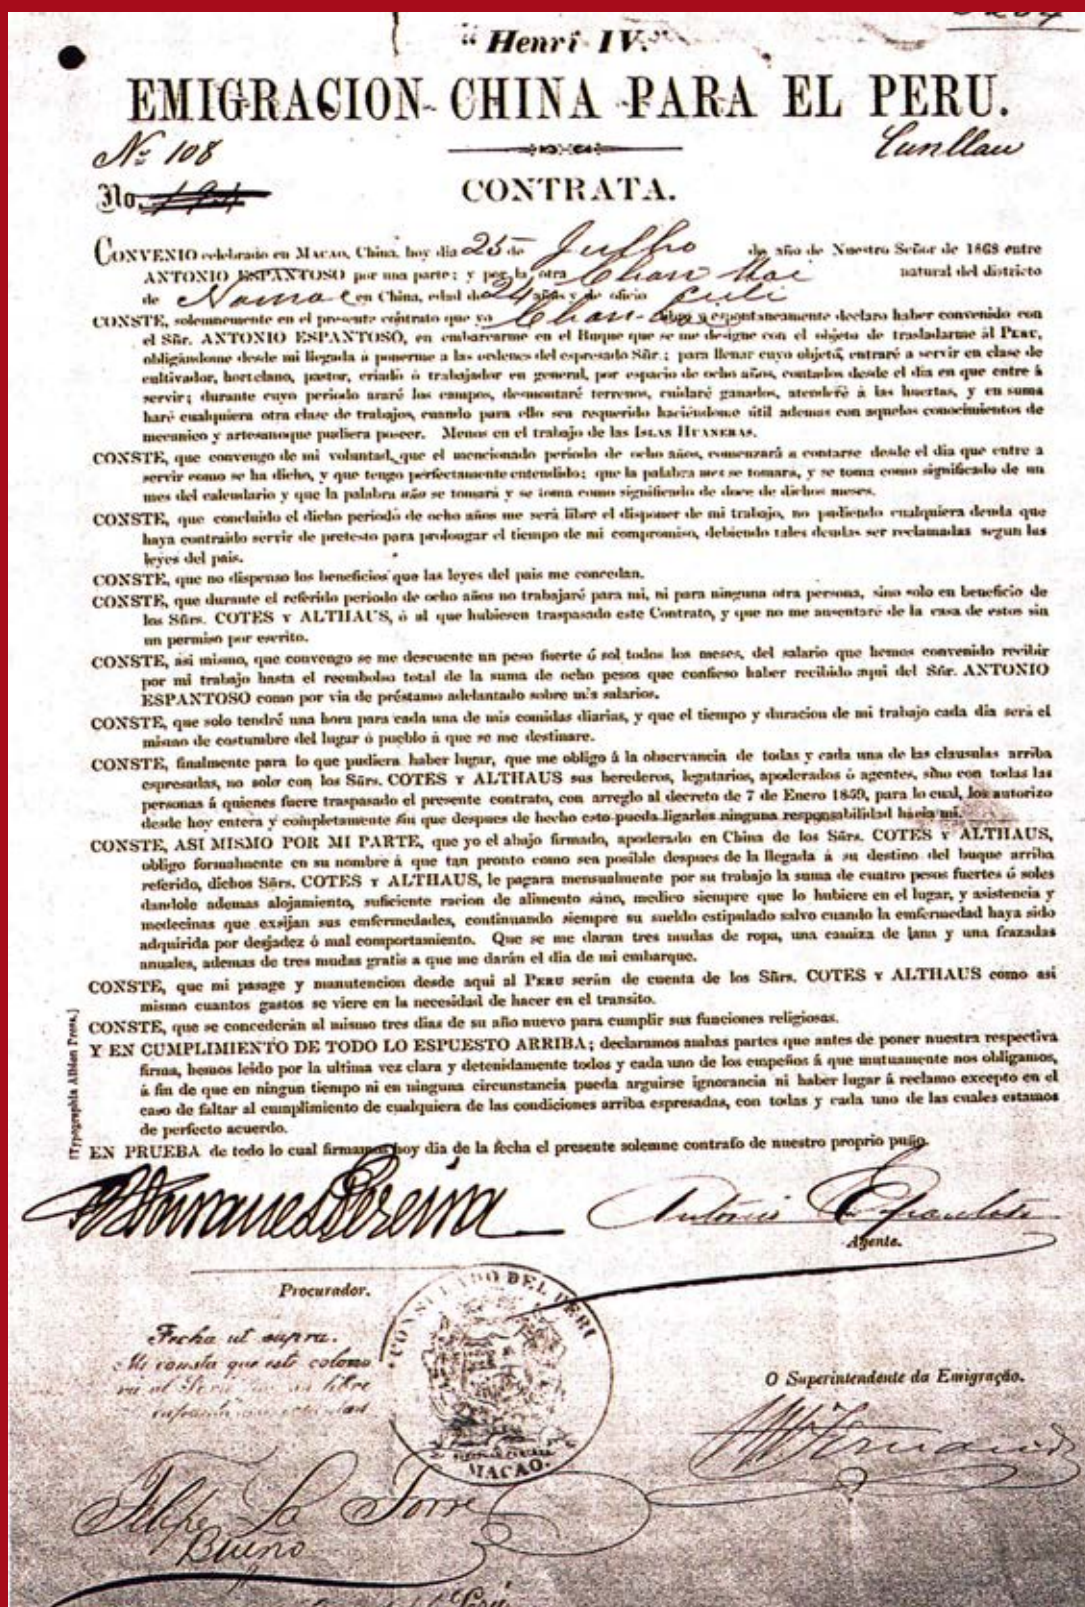 "Henri IV."
EMIGRACION CHINA PARA EL PERU.
Nº 108
Cunllau
No.
CONTRATA.
CONVENIO celebrado en MACAO, China, hoy dia 25 de Julho de año de Nuestro Señor de 1868 entre
ANTONIO ESPANTOSO por una parte; y por la otra Chan natural del districto
de en China, edad de 24 años y de oficio Culi
CONSTE, solemnemente en el presente contrato que yo Chan libre y espontaneamente declaro haber convenido con
el Sñr. ANTONIO ESPANTOSO, en embarcarme en el Buque que se me designe con el objeto de trasladarme al PERU,
obligándome desde mi llegada á ponerme a las ordenes del espresado Sñr.; para llenar cuyo objeto, entraré a servir en clase de
cultivador, hortelano, pastor, criado ó trabajador en general, por espacio de ocho años, contados desde el dia en que entre á
servir; durante cuyo periodo araré los campos, desmontaré terrenos, cuidaré ganados, atenderé á las huertas, y en suma
haré cualquiera otra clase de trabajos, cuando para ello sea requerido haciéndome útil ademas con aquelas conocimientos de
mecanico y artesanoque pudiera poseer. Menos en el trabajo de las ISLAS HUANERAS.
CONSTE, que convengo de mi voluntad, que el mencionado periodo de ocho años, comenzará a contarse desde el dia que entre a
servir como se ha dicho, y que tengo perfectamente entendido; que la palabra mes se tomará, y se toma como significado de un
mes del calendario y que la palabra año se tomará y se toma como significando de doce de dichos meses.
CONSTE, que concluido el dicho periodo de ocho años me será libre el disponer de mi trabajo, no pudiendo cualquiera deuda que
haya contraido servir de pretesto para prolongar el tiempo de mi compromiso, debiendo tales deudas ser reclamadas segun las
leyes del pais.
CONSTE, que no dispenso los beneficios que las leyes del pais me concedan.
CONSTE, que durante el referido periodo de ocho años no trabajaré para mi, ni para ninguna otra persona, sino solo en beneficio de
los Sñrs. COTES Y ALTHAUS, ó al que hubiesen traspasado este Contrato, y que no me ausentaré de la casa de estos sin
un permiso por escrito.
CONSTE, asi mismo, que convengo se me descuente un peso fuerte ó sol todos los meses, del salario que hemos convenido recibir
por mi trabajo hasta el reembolso total de la suma de ocho pesos que confieso haber recibido aqui del Sñr. ANTONIO
ESPANTOSO como por via de préstamo adelantado sobre mis salarios.
CONSTE, que solo tendré una hora para cada una de mis comidas diarias, y que el tiempo y duracion de mi trabajo cada dia será el
mismo de costumbre del lugar ó pueblo á que se me destinare.
CONSTE, finalmente para lo que pudiera haber lugar, que me obligo á la observancia de todas y cada una de las clausulas arriba
espresadas, no solor con los Sñrs. COTES Y ALTHAUS sus herederos, legatarios, apoderados ó agentes, sino con todas las
personas á quienes fuere traspasado el presente contrato, con arreglo al decreto de 7 de Enero 1859, para lo cual, los autorizo
desde hoy entera y completamente sin que despues de hecho esto pueda ligarles ninguna responsabilidad hácia mi.
CONSTE, ASI MISMO POR MI PARTE, que yo el abajo firmado, apoderado en China de los Sñrs. COTES Y ALTHAUS,
obligo formalmente en su nombre á que tan pronto como sea posible despues de la llegada á su destino del buque arriba
referido, dichos Sñrs. COTES Y ALTHAUS, le pagara mensualmente por su trabajo la suma de cuatro pesos fuertes ó soles
dandole ademas alojamiento, suficiente racion de alimento sáno, medico siempre que lo hubiere en el lugar, y asistencia y
medecinas que exsijan sus emfermedades, continuando siempre su sueldo estipulado salvo cuando la emfermedad haya sido
adquirida por desjadez ó mal comportamiento. Que se me daran tres mudas de ropa, una camiza de lana y una frazadas
anuales, ademas de tres mudas gratis a que me darán el dia de mi embarque.
CONSTE, que mi pasage y manutencion desde aqui al PERU serán de cuenta de los Sñrs. COTES Y ALTHAUS como asi
mismo cuantos gastos se viere en la necesidad de hacer en el transito.
CONSTE, que se concederán al mismo tres dias de su año nuevo para cumplir sus funciones religiosas.
Y EN CUMPLIMIENTO DE TODO LO ESPUESTO ARRIBA; declaramos ambas partes que antes de poner nuestra respectiva
firma, hemos leido por la ultima vez clara y detenidamente todos y cada uno de los empeños á que mutuamente nos obligamos,
á fin de que en ningun tiempo ni en ninguna circunstancia pueda arguirse ignorancia ni haber lugar á reclamo excepto en el
caso de faltar al cumplimiento de cualquiera de las condiciones arriba espresadas, con todas y cada uno de las cuales estamos
de perfecto acuerdo.
EN PRUEBA de todo lo cual firmamos hoy dia de la fecha el presente solemne contrato de nuestro proprio puño.
[Typographia Albion Press.]
Pereira
Antonio Espantoso
Agente.
Procurador.
CONSULADO DEL PERU
MACAO.
Fecha ut supra.
Me consta que este colono
va al Perú libre
O Superintendente da Emigração.
Felipe La Torre
Bueno
Perú